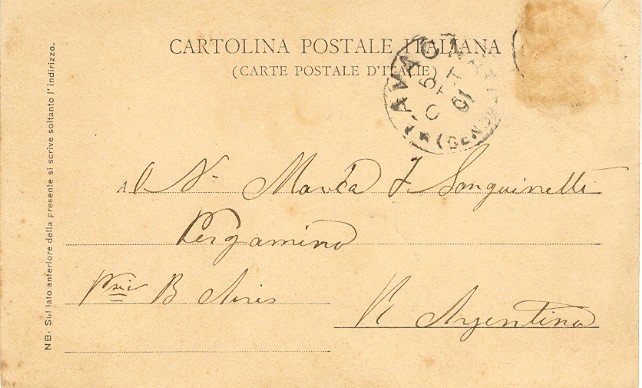 CARTOLINA POSTALE ITALIANA
(CARTE POSTALE D'ITALIE)
LAVAG
(GENOVA)
6
01
NB- Sul lato anteriore della presente si scrive soltanto l'indirizzo.
Al Sr. F. Sanguinetti
Pergamino
B Aires
R Argentina